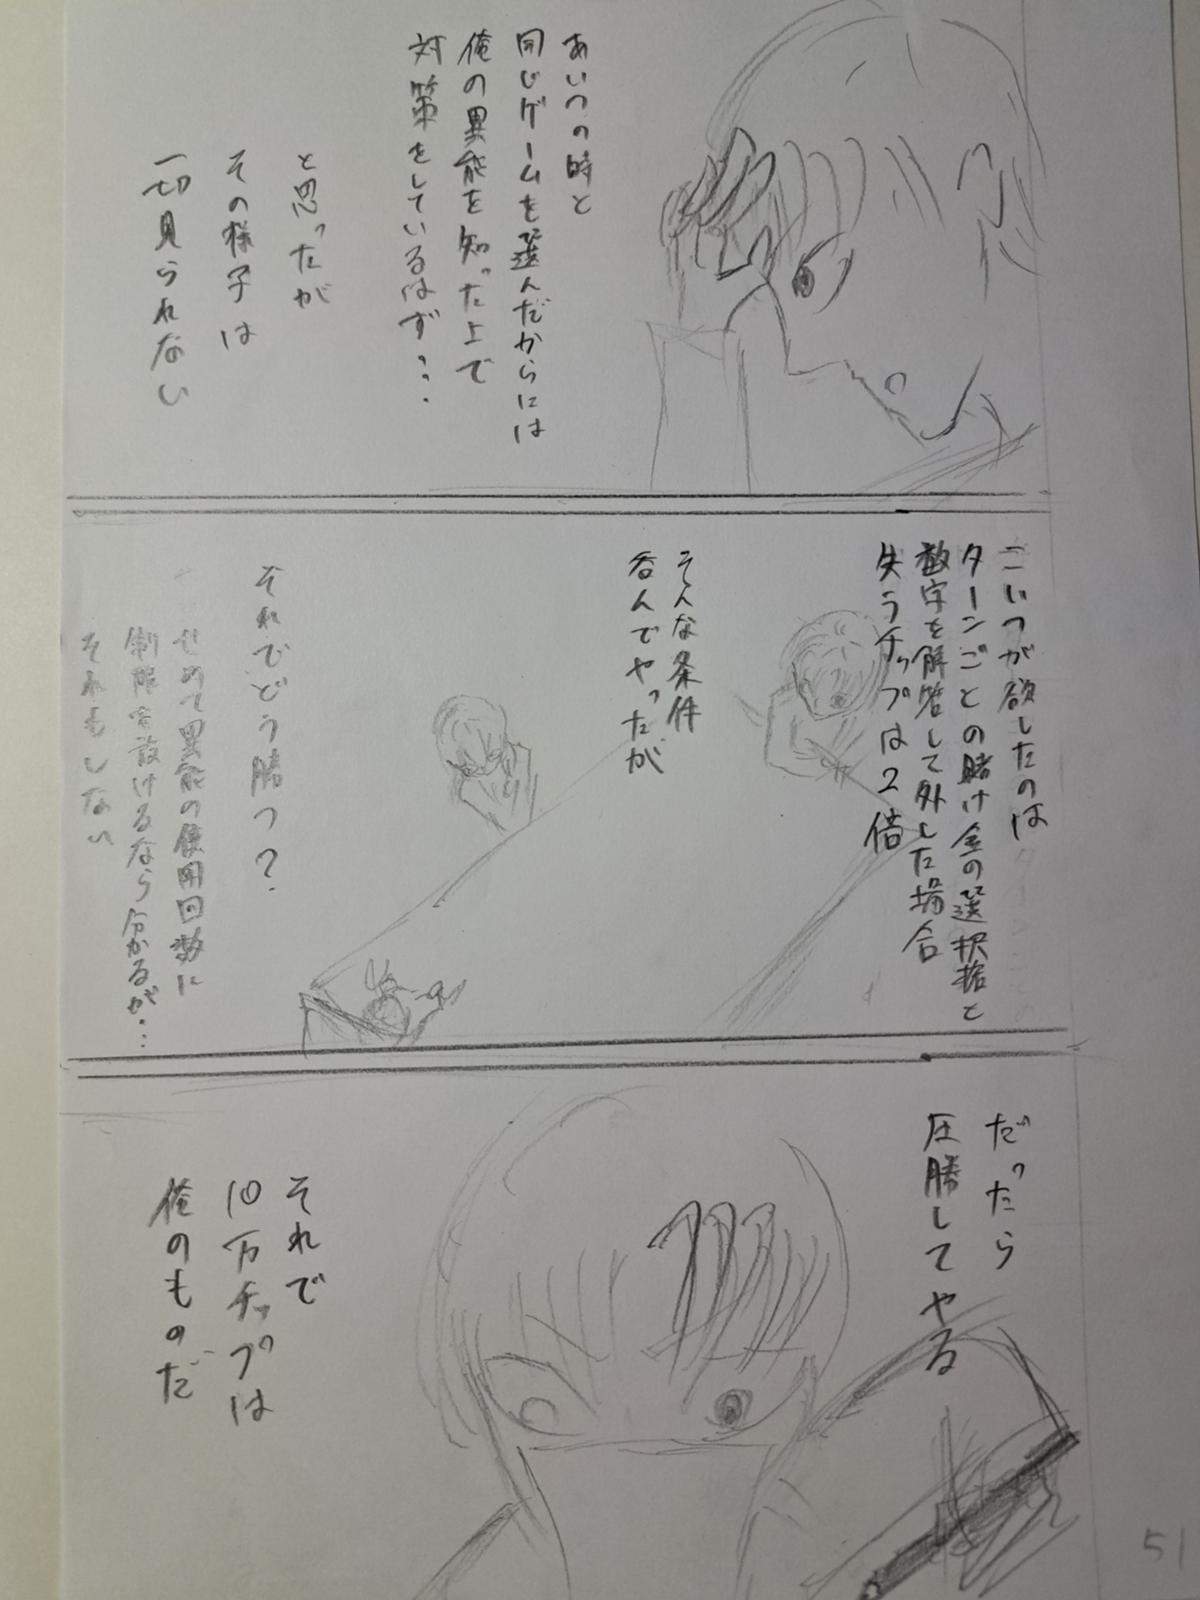 あいつの時と
同じゲームを選んだからには
俺の異能を知った上で
対策をしているはず・・・
と思ったが
その様子は
一切見られない
こいつが欲したのは
ターンごとの賭け金の選択権と
数字を解答して外した場合
失うチップは2倍
そんな条件
呑んでやったが
それでどう勝つ?
せめて異能の使用回数に
制限を設けるなら分かるが・・・
それもしない
だったら
圧勝してやる
それで
10万チップは
俺のものだ
51